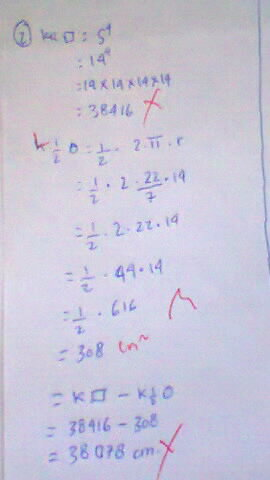 ② kk □ = S⁴
= 14⁴
= 14 × 14 × 14 × 14
= 38416
k ½ O = ½ · 2 · π · r
= ½ · 2 · 22/7 · 14
= ½ · 2 · 22 · 14
= ½ · 44 · 14
= ½ · 616
= 308 cm²
= k □ − k ½ O
= 38416 − 308
= 38078 cm